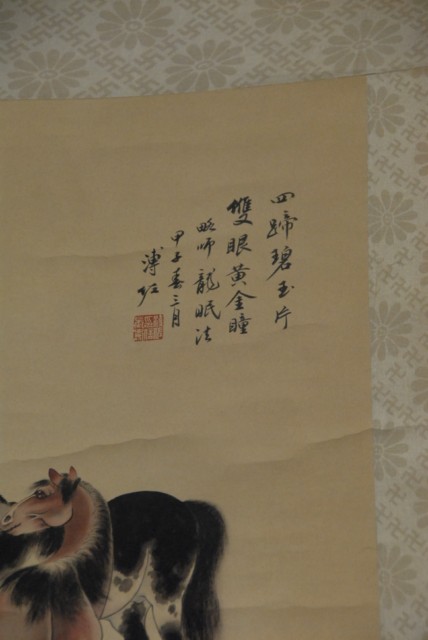 四蹄碧玉片
雙眼黃金瞳
略師龍眠法
甲子春三月
溥佐